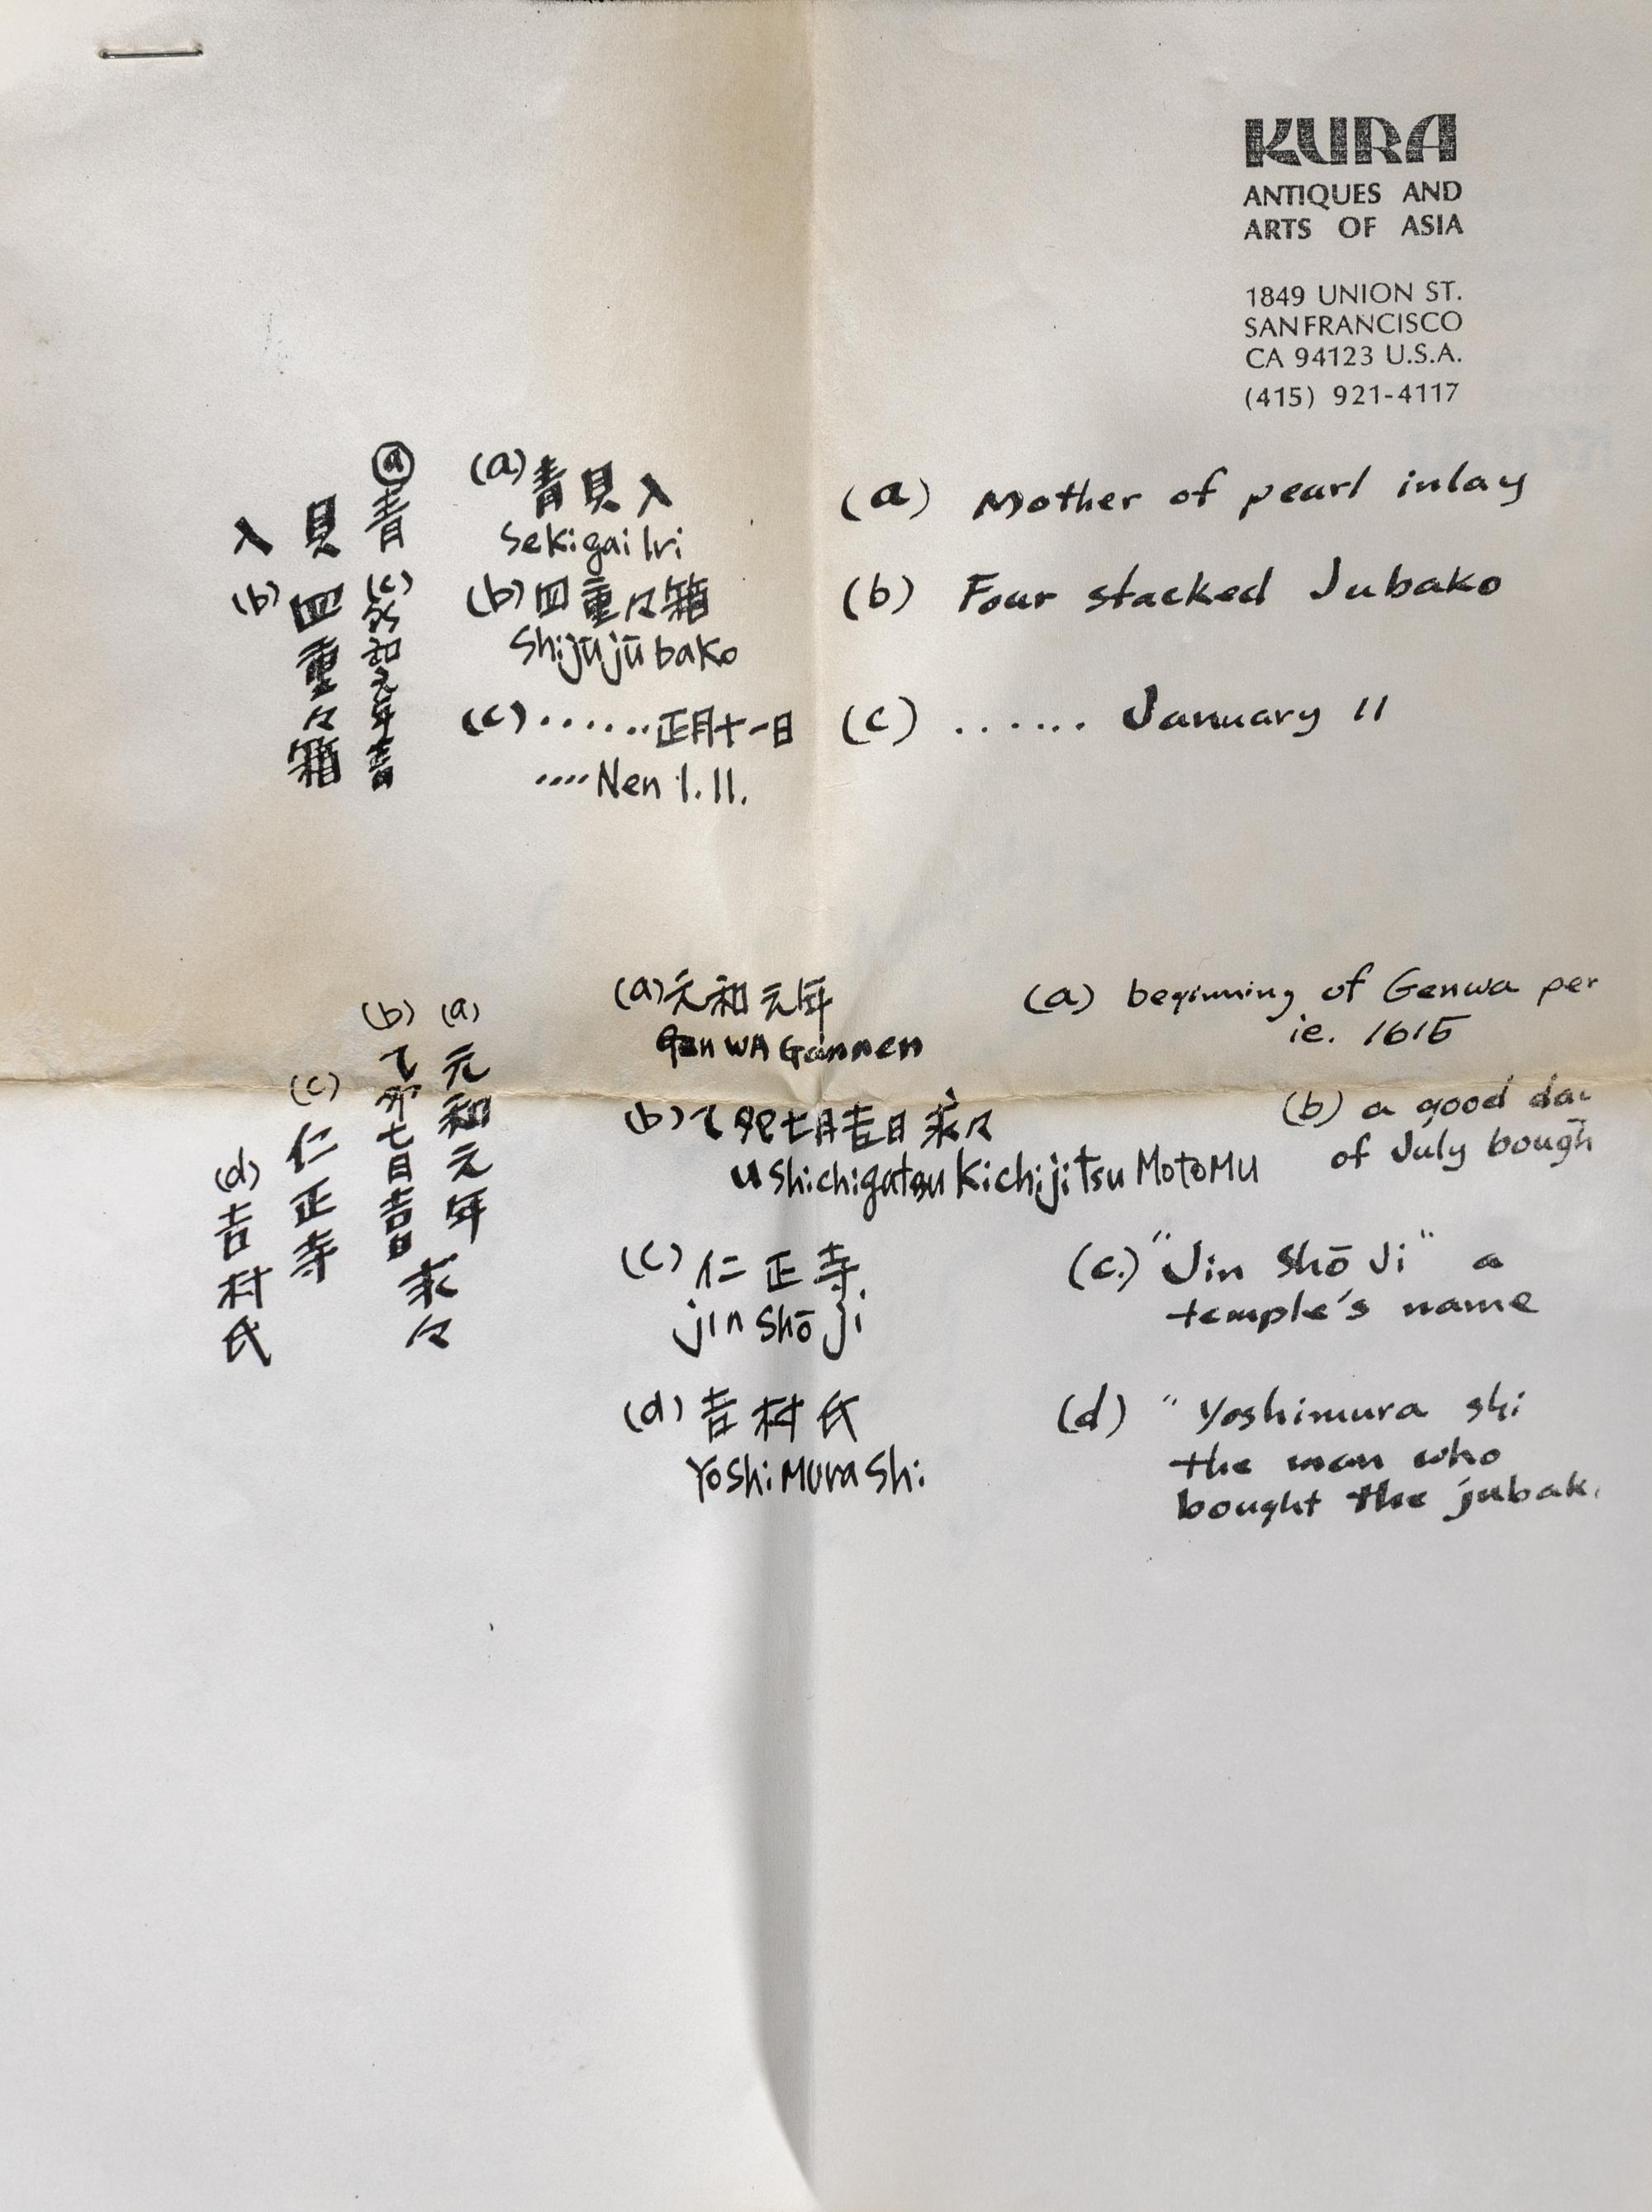 KURA
ANTIQUES AND
ARTS OF ASIA
1849 UNION ST.
SAN FRANCISCO
CA 94123 U.S.A.
(415) 921-4117
(a) 青
貝
入
(c) 元年吉
(b) 四重々箱
(a) 青貝入
Sekigai Iri
(b) 四重々箱
Shijūjūbako
(c) ...... 正月十一日
.... Nen 1. 11.
(a) Mother of pearl inlay
(b) Four stacked Jubako
(c) ...... January 11
(a) 元和元年
(b) 乙卯七月吉日
求々
(c) 仁正寺
(d) 吉村氏
(a) 元和元年
GenWA Gannen
(b) 乙卯七月吉日求々
u Shichigatsu Kichijitsu MotoMu
(c) 仁正寺
jin Shō ji
(d) 吉村氏
YoshiMura Shi
(a) beginning of Genwa per
ie. 1615
(b) a good
of July bough
(c.) "Jin Shō Ji" a
temple's name
(d) "Yoshimura shi
the man who
bought the jubak